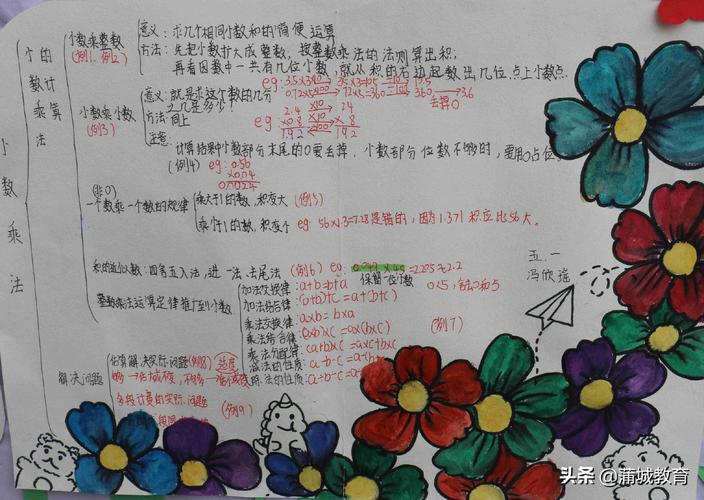 小数乘法
小数的计算乘法
小数乘整数
(例1、例2)
意义：求几个相同小数和的简便运算
方法：先把小数扩大成整数，按整数乘法的法则算出积；
再看因数中一共有几位小数，就从积的右边起数出几位，点上小数点.
小数乘小数
(例3)
意义：就是求这个数的几分之几是多少？
方法：同上
eg
2.4 ×10 24
×0.8 ×10 × 8
1.92 ÷100 192
360 3.6
去掉0
注意：
计算结果中小数部分末尾的0要去掉，小数部分位数不够的，要用0占位
(例4) eg: 0.56
×0.04
0.0224
(非0)
一个数乘一个数的规律
乘大于1的数，积变大 (例5)
乘小于1的数，积变小 eg: 56×1.3=7.28是错的，因为1.3>1 积应比56大。
积的近似数：四舍五入法，进一法，去尾法 (例6) eg:
保留一位小数
整数乘法运算定律推广到小数
加法交换律：a+b=b+a
加法结合律：(a+b)+c=a+(b+c)
乘法交换律：a×b=b×a
乘法结合律：(a×b)×c=a×(b×c)
(例7)
乘法分配律：
减法的性质：a-b-c=a-(b
除法的性质：
解决问题
估算解决实际问题(例8)
分段计费的实际问题
(例9)
五.一
冯欣瑶
头条 @蒲城教育